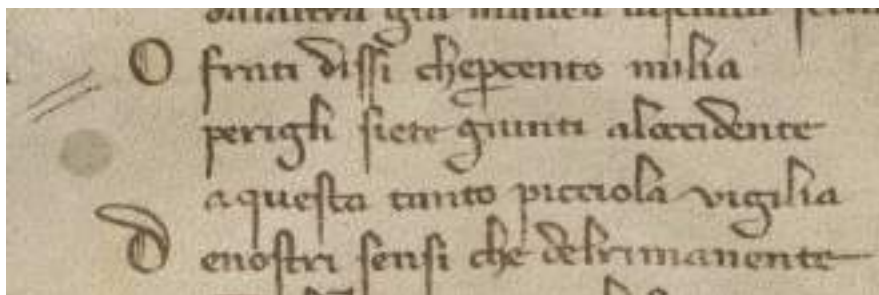 O frati dissi che ꝑ cento milia
perigli siete giunti aloccidente
aquesta tanto picciola vigilia
D enostri sensi che delrimanente